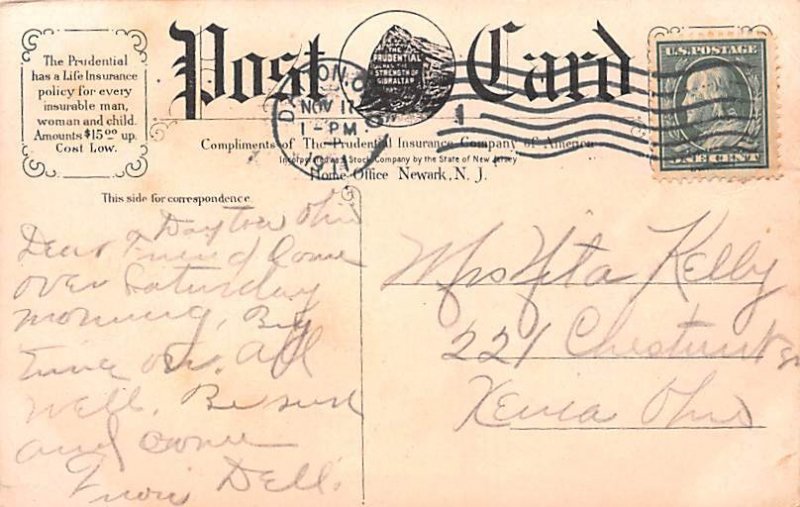 The Prudential
has a Life Insurance
policy for every
insurable man,
woman and child.
Amounts $15.00 up.
Cost Low.
Post Card
THE
PRUDENTIAL
HAS THE
STRENGTH OF
GIBRALTAR
DAYTON, O
NOV 17
1-PM
U.S. POSTAGE
ONE CENT
Compliments of The Prudential Insurance Company of America
Incorporated as a Stock Company by the State of New Jersey
Home Office Newark, N. J.
This side for correspondence.
Dayton Ohio
Dear Friend Come
over Saturday
morning, Big
time on. All
well. Be sure
and come
From Dell.
Mrs Kelly
221 Chestnut St
Xenia Ohio